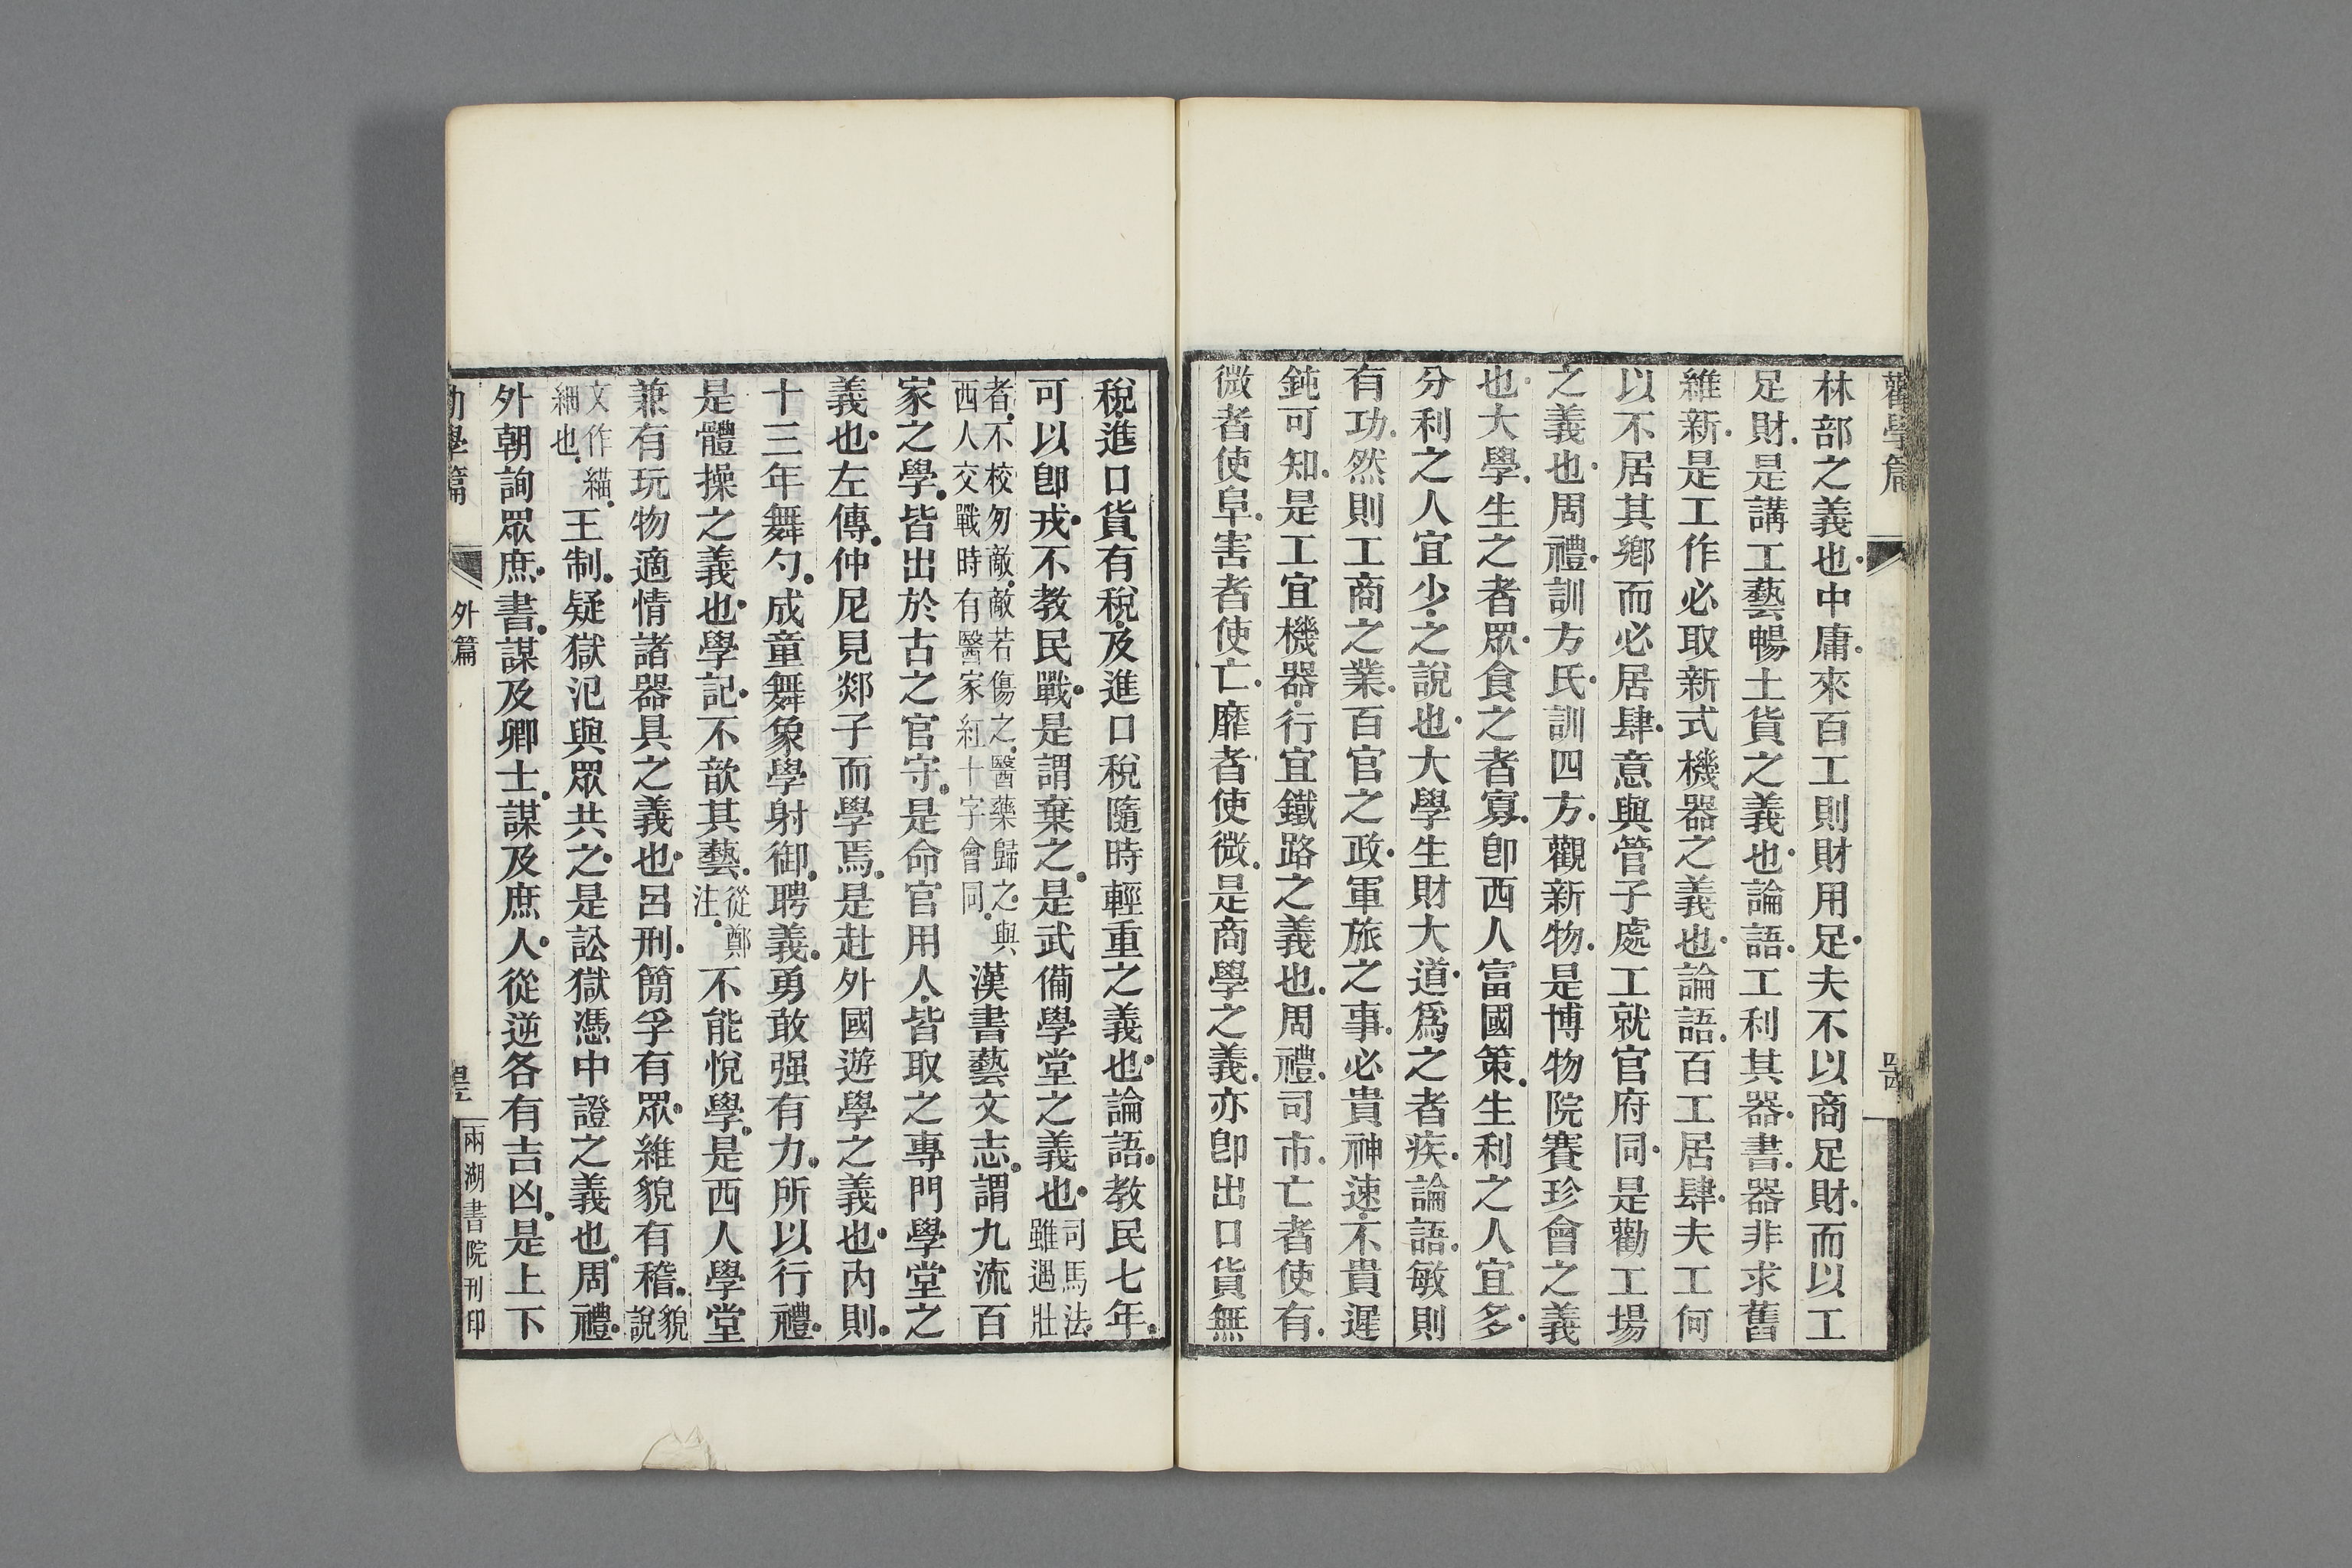 勸學篇
林部之義也中庸來百工則財用足夫不以商足財而以工
足財是講工藝暢土貨之義也論語工利其器書器非求舊
維新是工作必取新式機器之義也論語百工居肆夫工何
以不居其鄕而必居肆意與管子處工就官府同是勸工場
之義也周禮訓方氏訓四方觀新物是博物院賽珍會之義
也大學生之者眾食之者寡卽西人富國策生利之人宜多
分利之人宜少之說也大學生財大道爲之者疾論語敏則
有功然則工商之業百官之政軍旅之事必貴神速不貴遲
鈍可知是工宜機器行宜鐵路之義也周禮司市亡者使有
微者使阜害者使亡靡者使微是商學之義亦卽出口貨無
稅進口貨有稅及進口稅隨時輕重之義也論語教民七年
可以卽戎不教民戰是謂棄之是武備學堂之義也司馬法雖遇壯
者不校勿敵敵若傷之醫藥歸之與西人交戰時有醫家紅十字會同漢書藝文志謂九流百
家之學皆出於古之官守是命官用人皆取之專門學堂之
義也左傳仲尼見郯子而學焉是赴外國遊學之義也內則
十三年舞勺成童舞象學射御聘義勇敢强有力所以行禮
是體操之義也學記不歆其藝從鄭注不能悅學是西人學堂
兼有玩物適情諸器具之義也呂刑簡孚有眾維貌有稽貌說
文作緢細也王制疑獄氾與眾共之是訟獄憑中證之義也周禮
外朝詢眾庶書謀及卿士謀及庶人從逆各有吉凶是上下
學篇
外篇
兩湖書院刊印